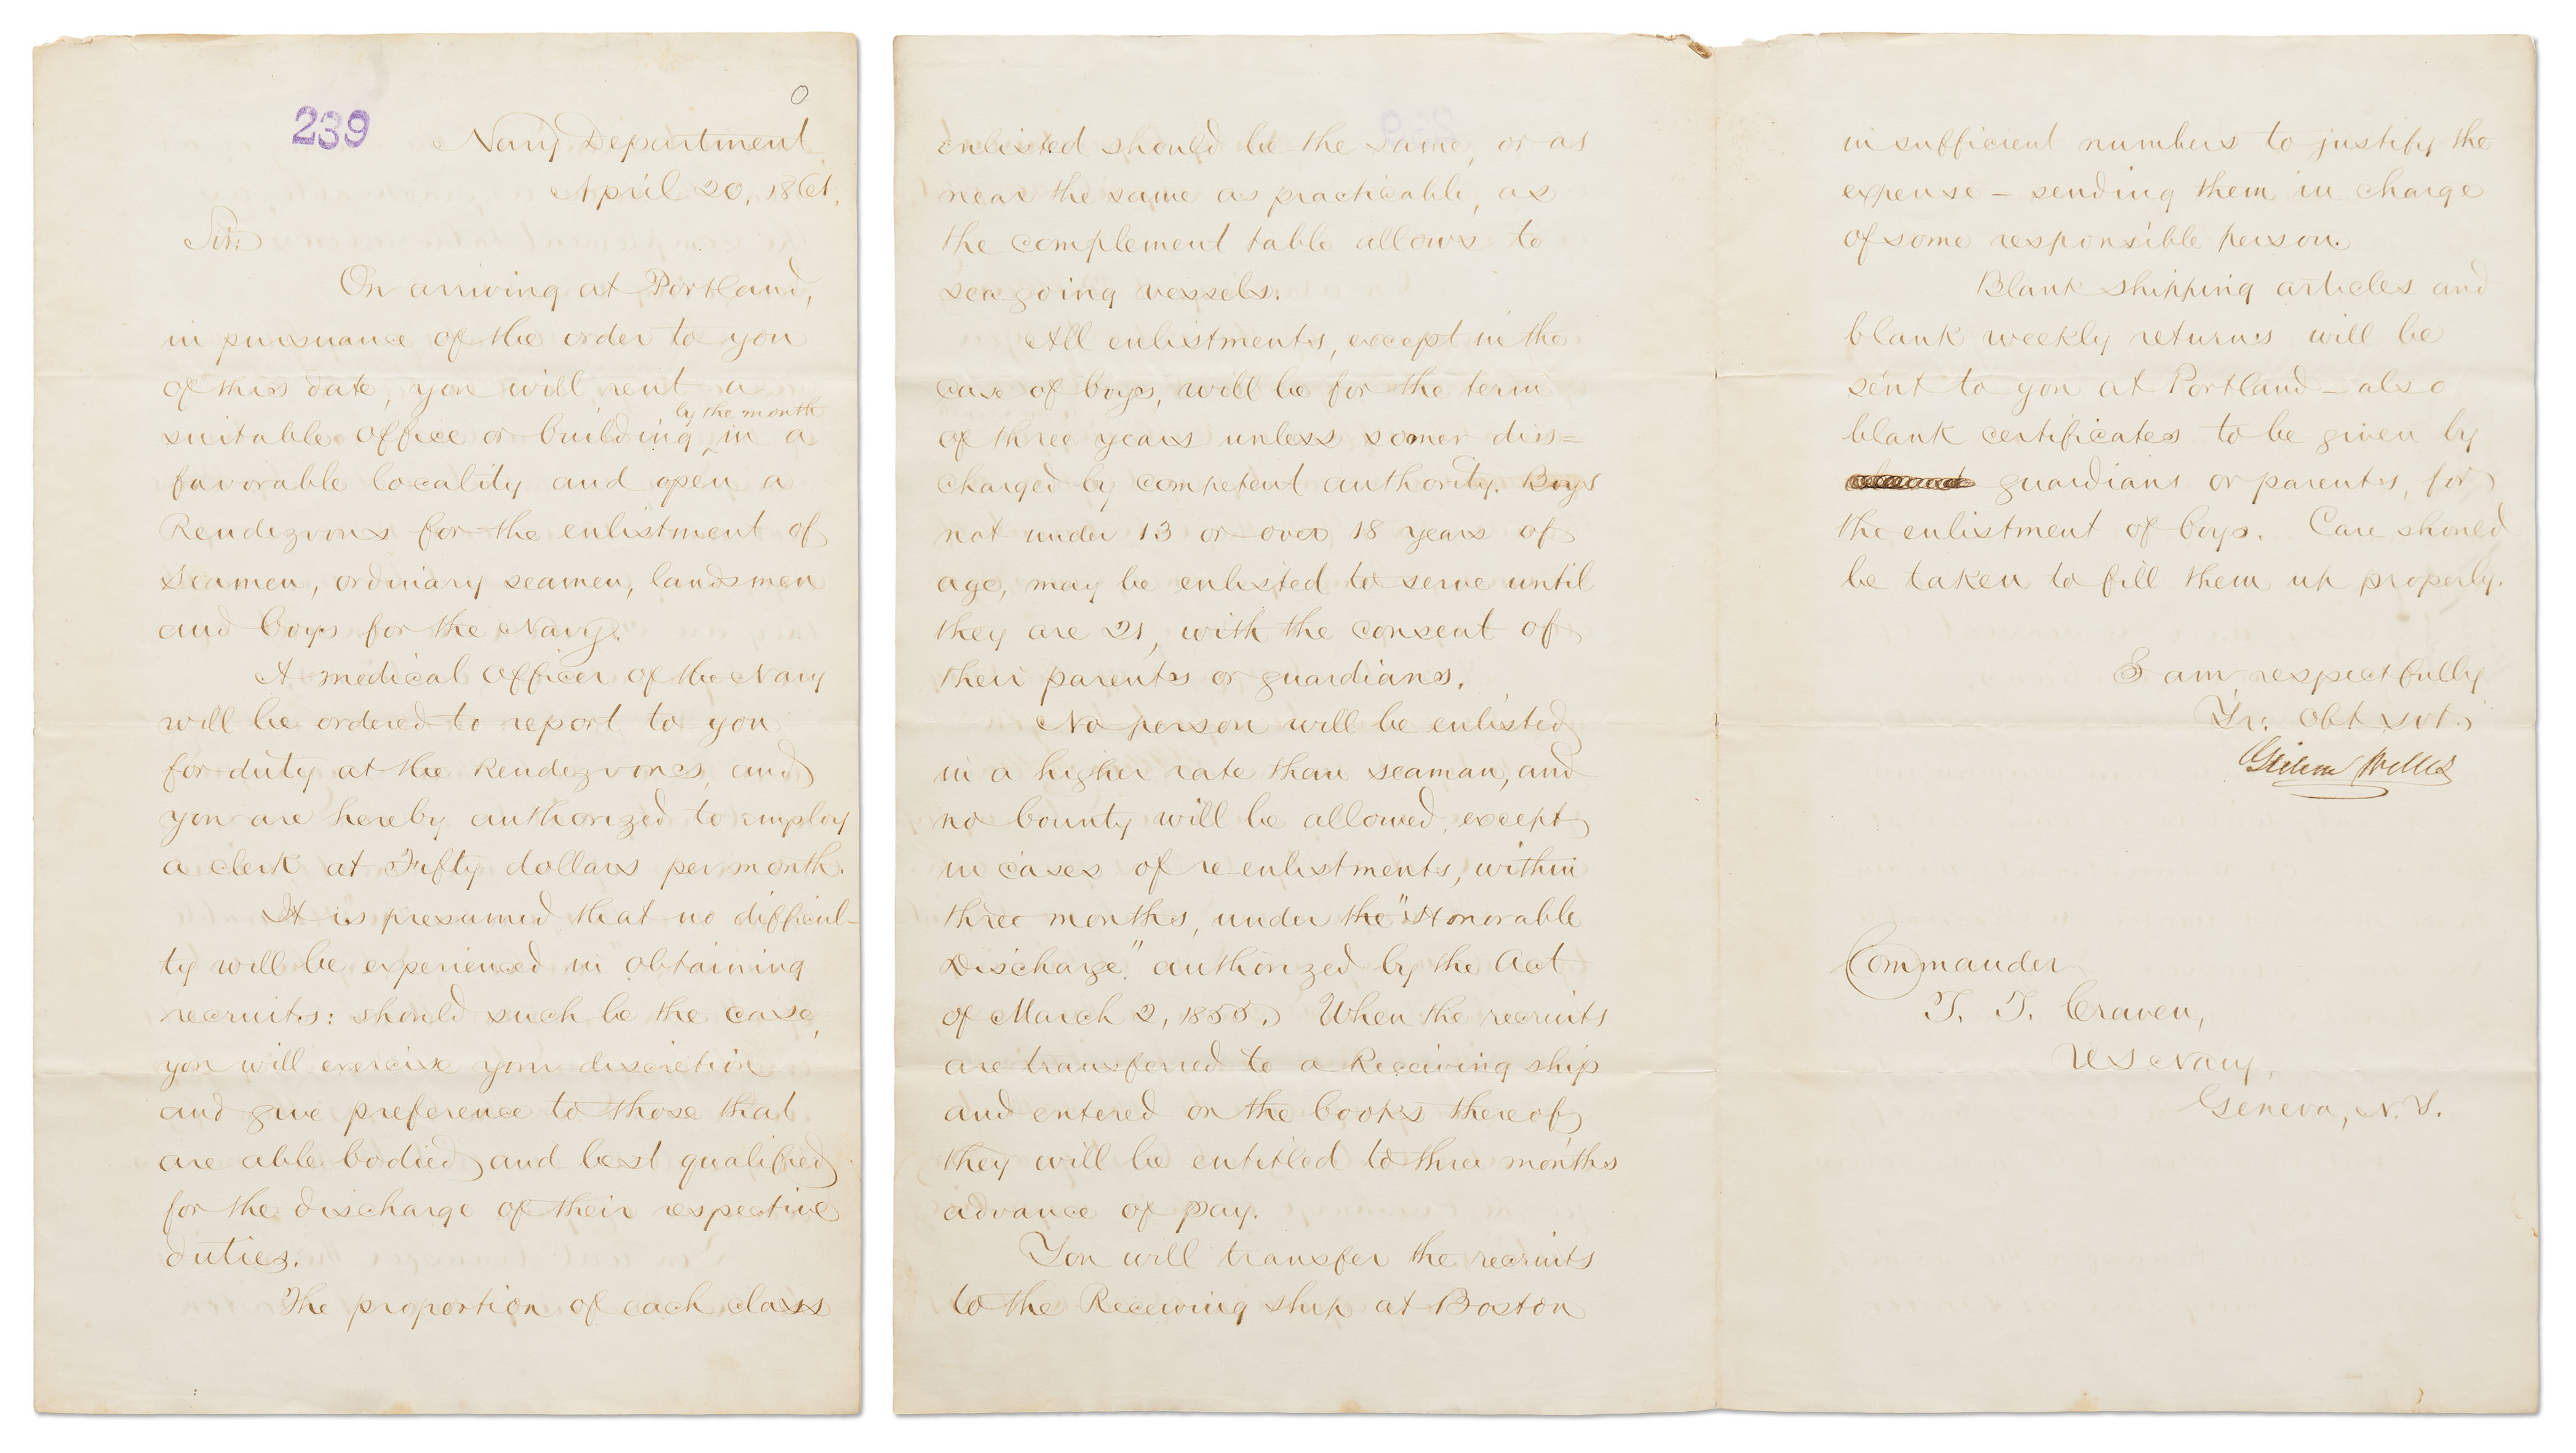 239
0
Navy Department
April 20, 1861.
Sir:
On arriving at Portland,
in pursuance of the order to you
of this date, you will rent a
by the month
suitable office or building in a
favorable locality and open a
Rendezvous for the enlistment of
Seamen, ordinary seamen, landsmen
and boys for the Navy.
A medical officer of the Navy
will be ordered to report to you
for duty at the Rendezvous, and
you are hereby authorized to employ
a clerk at Fifty dollars per month.
It is presumed that no difficul-
ty will be experienced in obtaining
recruits: should such be the case,
you will exercise your discretion
and give preference to those that
are able bodied and best qualified
for the discharge of their respective
duties.
The proportion of each class
enlisted should be the same, or as
near the same as practicable, as
the complement table allows to
sea going vessels.
All enlistments, except in the
case of boys, will be for the term
of three years unless sooner dis=
charged by competent authority. Boys
not under 13 or over 18 years of
age, may be enlisted to serve until
they are 21, with the consent of
their parents or guardians.
No person will be enlisted
in a higher rate than seaman, and
no bounty will be allowed, except
in cases of re enlistments, within
three months, under the "Honorable
Discharge" authorized by the Act
of March 2, 1855. When the recruits
are transferred to a Receiving ship
and entered on the books thereof
they will be entitled to three months
advance of pay.
You will transfer the recruits
to the Receiving ship at Boston
in sufficient numbers to justify the
expense – sending them in charge
of some responsible person.
Blank shipping articles and
blank weekly returns will be
sent to you at Portland – also
blank certificates to be given by
guardians or parents, for
the enlistment of boys. Care should
be taken to fill them up properly.
I am respectfully
Yr: Obt svt.
Gideon Welles
Commander
T. T. Craven,
US Navy,
Geneva, N.Y.